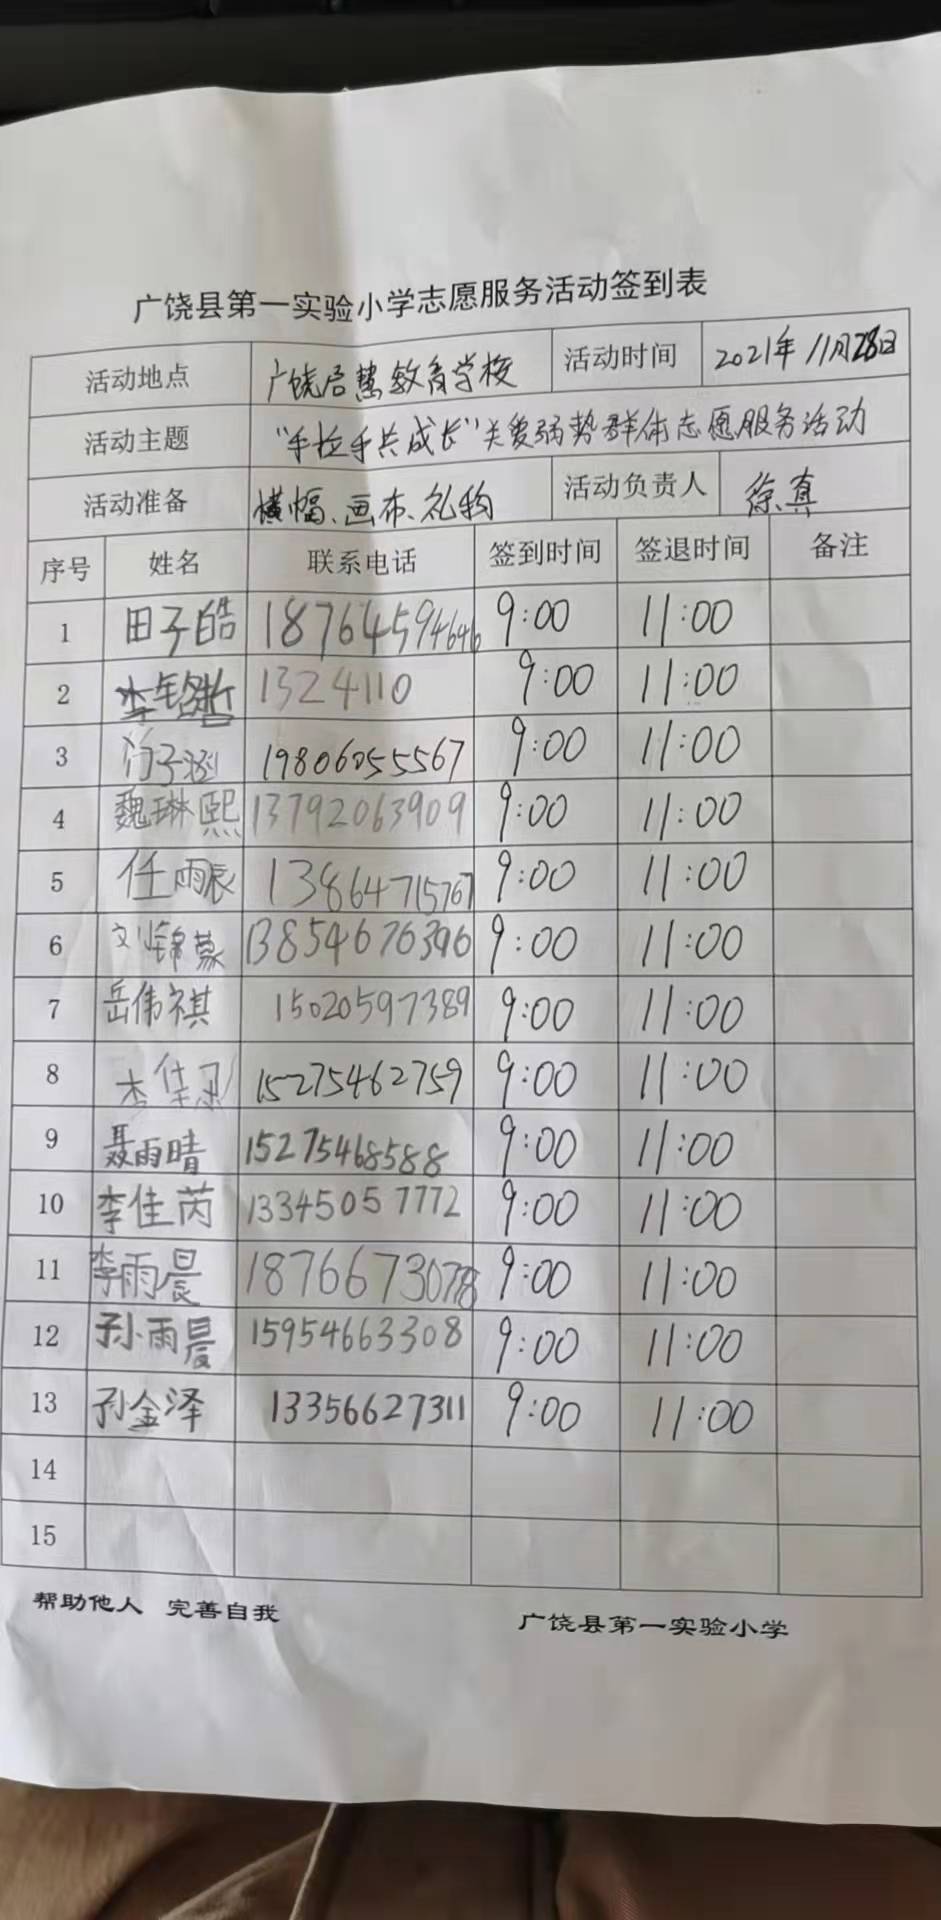 广饶县第一实验小学志愿服务活动签到表
活动地点 广饶启慧教育学校 活动时间 2021年11月28日
活动主题 "手拉手共成长"关爱弱势群体志愿服务活动
活动准备 横幅、画布、礼物 活动负责人 徐真
序号 姓名 联系电话 签到时间 签退时间 备注
1 田子皓 18764594646 9:00 11:00
2 李铭哲 1324110 9:00 11:00
3 19806055567 9:00 11:00
4 魏琳熙 13792063909 9:00 11:00
5 任雨辰 13864715767 9:00 11:00
6 刘锦蒙 13854676396 9:00 11:00
7 岳伟祺 15020597389 9:00 11:00
8 15275462759 9:00 11:00
9 聂雨晴 15275468588 9:00 11:00
10 李佳芮 13345057772 9:00 11:00
11 李雨晨 18766673078 9:00 11:00
12 孙雨晨 15954663308 9:00 11:00
13 孙金泽 13356627311 9:00 11:00
14
15
帮助他人 完善自我 广饶县第一实验小学